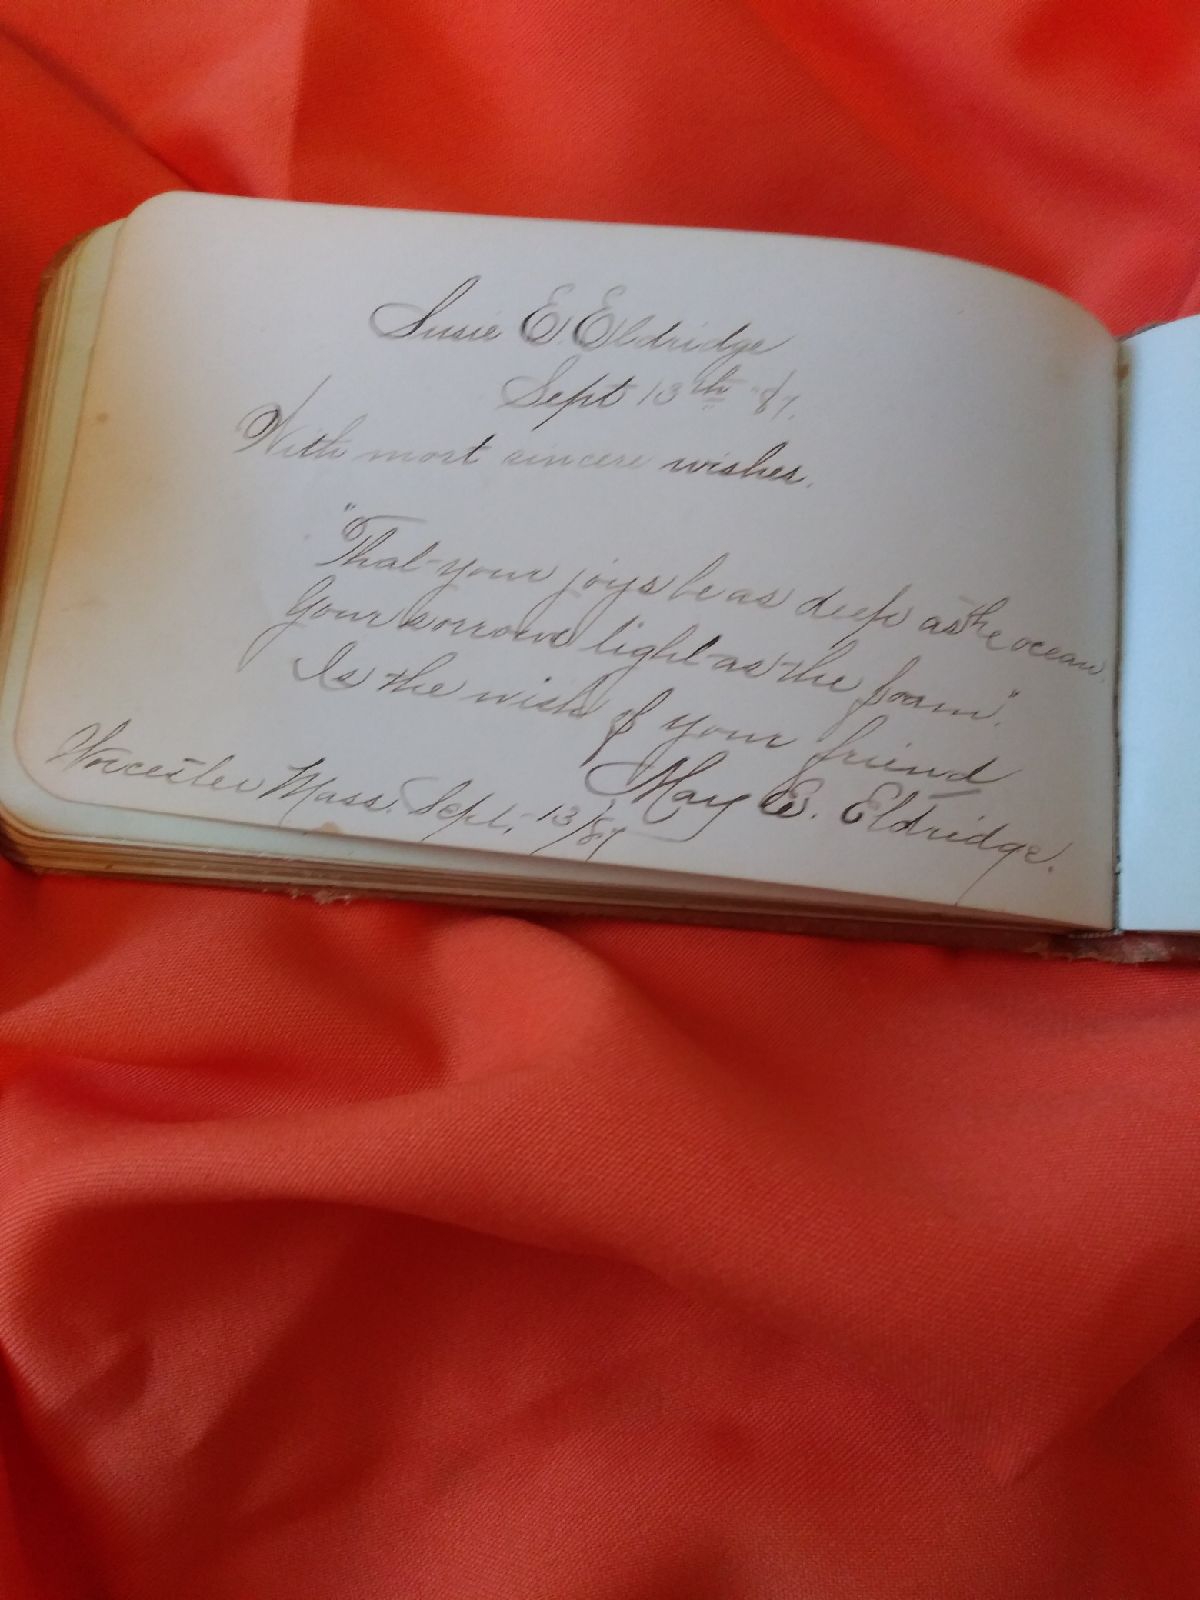 Susie E. Eldridge
Sept 13th "87.
With most sincere wishes.
"That your joys be as deep as the ocean
Your sorrows light as the foam".
Is the wish of your friend
Mary E. Eldridge.
Worcester Mass. Sept, 13/87